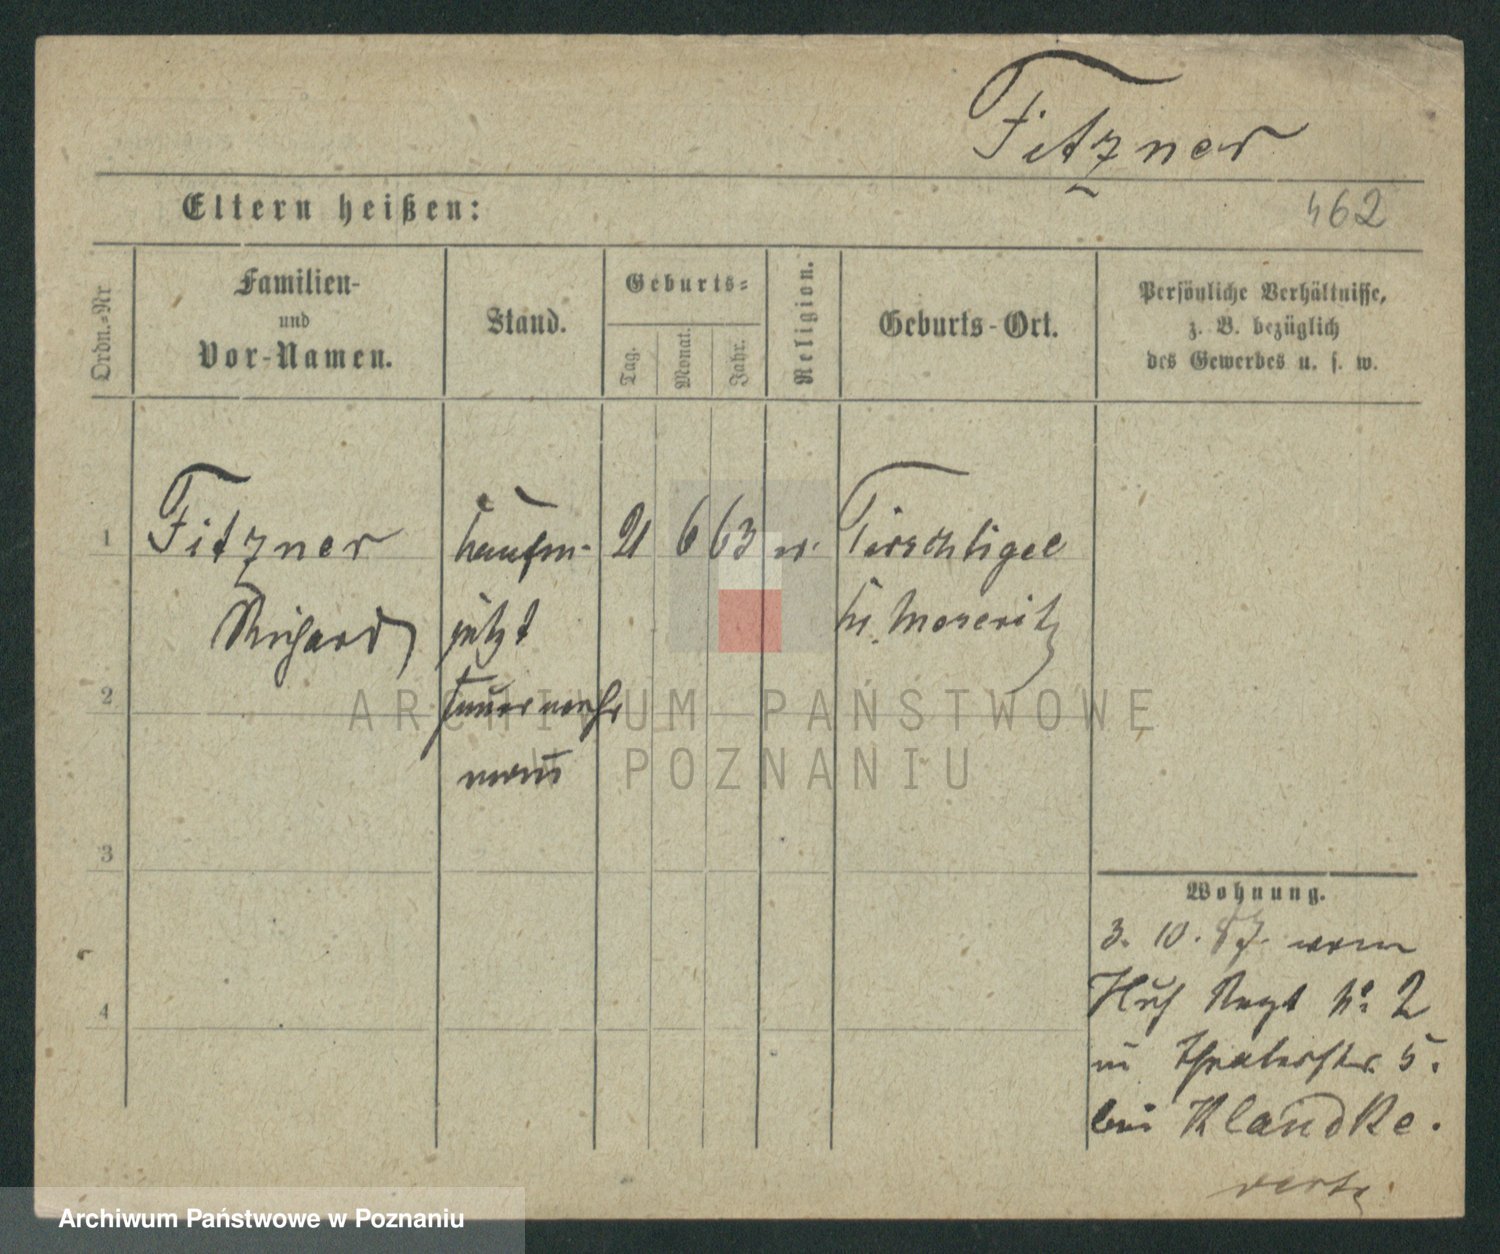 Fitzner
Eltern heißen:
462
Ordn.-Nr
Familien-
und
Vor-Namen.
Stand.
Geburts-
Tag.
Monat.
Jahr.
Religion.
Geburts-Ort.
Persönliche Verhältnisse,
z. B. bezüglich
des Gewerbes u. s. w.
1
Fitzner
Richard
Kaufm.
jetzt
Feuerwehr
mann
21 6 63
Tirschtigel
Kr. Meseritz
2
3
4
Wohnung.
3. 10. 87. vom
Hus Regt No 2
in Theaterstr. 5.
bei Klandke.
ARCHIWUM PAŃSTWOWE
W POZNANIU
Archiwum Państwowe w Poznaniu